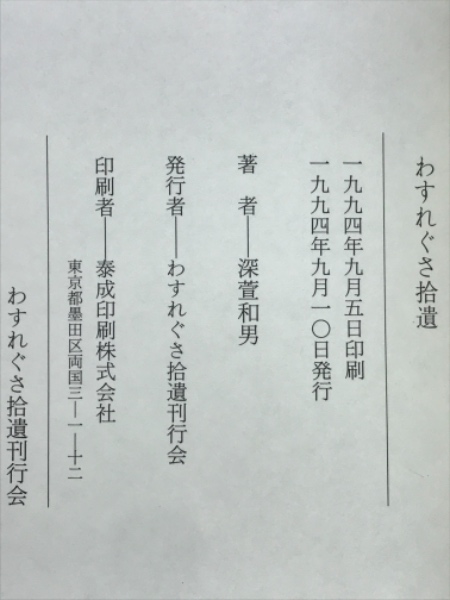 わすれぐさ拾遺
一九九四年九月五日印刷
一九九四年九月一〇日発行
著　者――深萱和男
発行者――わすれぐさ拾遺刊行会
印刷者――泰成印刷株式会社
東京都墨田区両国三―一―十二
わすれぐさ拾遺刊行会